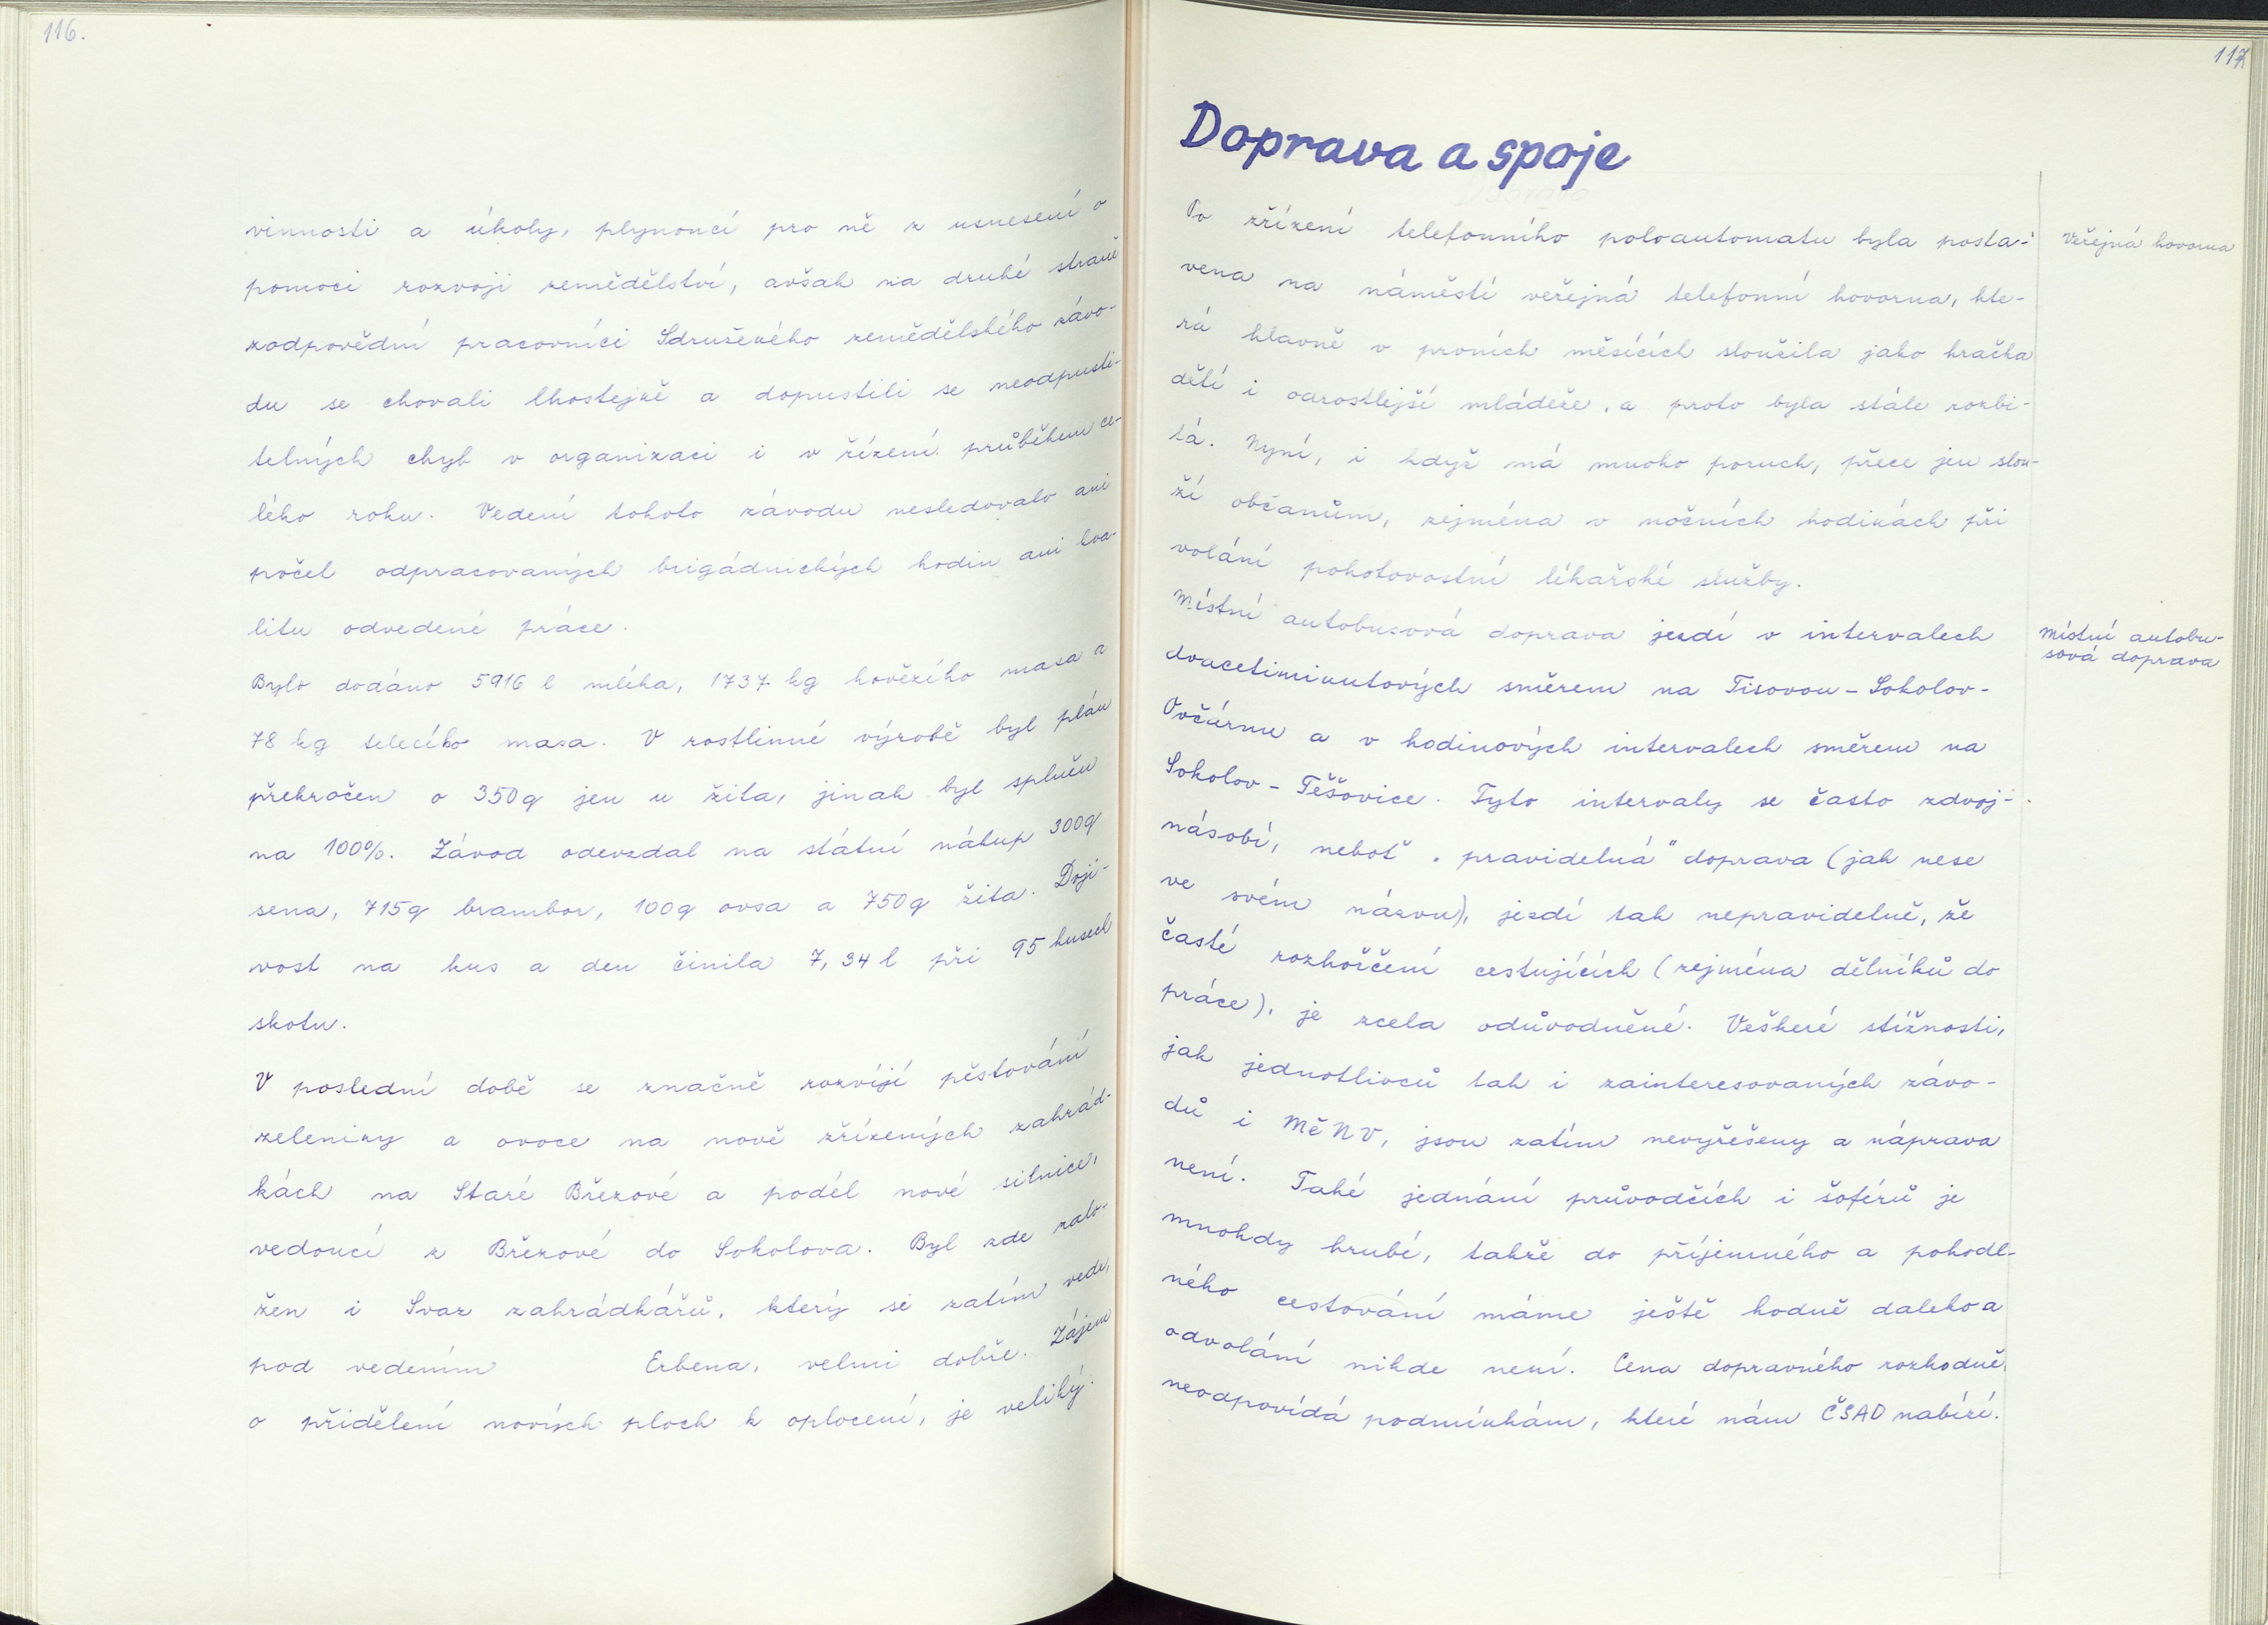 116.
vinnosti a úkoly, plynoucí pro ně z usnesení o
pomoci rozvoji zemědělství, avšak na druhé straně
zodpovědní pracovníci Sdruženého zemědělského závo-
du se chovali lhostejně a dopustili se neodpusti-
telných chyb v organizaci i v řízení průběhem ce-
lého roku. Vedení tohoto závodu nesledovalo ani
počet odpracovaných brigádnických hodin ani kva-
litu odvedené práce.
Bylo dodáno 5916 l mléka, 1737 kg hovězího masa a
78 kg telecího masa. V rostlinné výrobě byl plán
překročen o 350q jen u žita, jinak byl splněn
na 100%. Závod odevzdal na státní nákup 300q
sena, 715q brambor, 100q ovsa a 750q žita. Doji-
vost na kus a den činila 7,34 l při 95 kusech
skotu.
V poslední době se značně rozvíjí pěstování
zeleniny a ovoce na nově zřízených zahrád-
kách na Staré Březové a podél nové silnice,
vedoucí z Březové do Sokolova. Byl zde zalo-
žen i Svaz zahrádkářů, který si zatím vede,
pod vedením Erbena, velmi dobře. Zájem
o přidělení nových ploch k oplocení, je veliký.
117
Doprava a spoje
Po zřízení telefonního poloautomatu byla posta-
vena na náměstí veřejná telefonní hovorna, kte-
rá hlavně v prvních měsících sloužila jako hračka
dětí i odrostlejší mládeže, a proto byla stále rozbi-
tá. Nyní, i když má mnoho poruch, přece jen slou-
ží občanům, zejména v nočních hodinách při
volání pohotovostní lékařské služby.
Veřejná hovorna
Místní autobusová doprava jezdí v intervalech
dvacetiminutových směrem na Tisovou - Sokolov -
Ovčárnu a v hodinových intervalech směrem na
Sokolov - Těšovice. Tyto intervaly se často zdvoj-
násobí, neboť "pravidelná" doprava (jak nese
ve svém názvu), jezdí tak nepravidelně, že
časté rozhořčení cestujících (zejména dělníků do
práce), je zcela odůvodněné. Veškeré stížnosti,
jak jednotlivců tak i zainteresovaných závo-
dů i MěNV, jsou zatím nevyřešeny a náprava
není. Také jednání průvodčích i šoférů je
mnohdy hrubé, takže do příjemného a pohodl-
ného cestování máme ještě hodně daleko a
odvolání nikde není. Cena dopravného rozhodně,
neodpovídá podmínkám, které nám ČSAD nabízí.
Místní autobu-
sová doprava